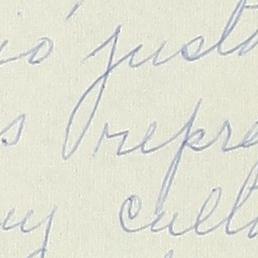 ió justa
s repre
uy culta